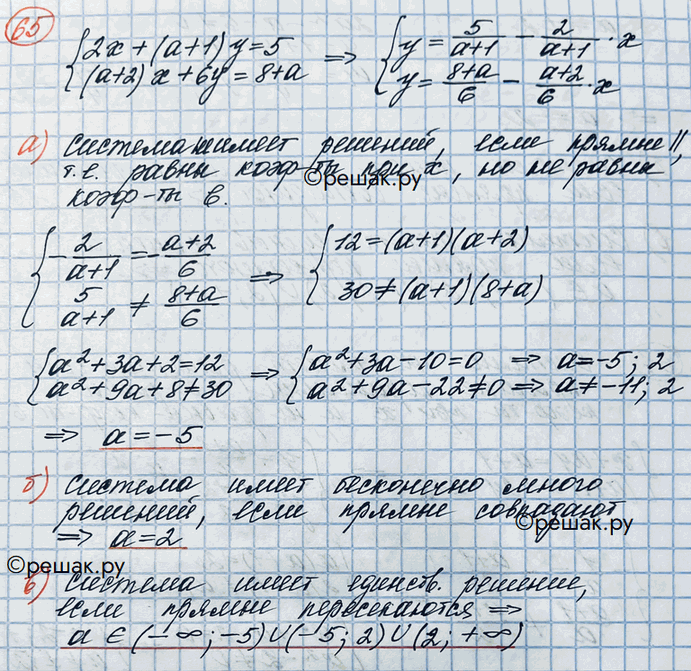 65
{2x + (a+1)y = 5 ⇒ {y = 5/(a+1) − 2/(a+1) · x
{(a+2)x + 6y = 8+a {y = (8+a)/6 − (a+2)/6 · x
а) система не имеет решений, если прямые ||,
т.е. равны коэф-ты при x, но не равны
коэф-ты в.
©решак.ру
{−2/(a+1) = −(a+2)/6 ⇒ {12 = (a+1)(a+2)
{5/(a+1) ≠ (8+a)/6 {30 ≠ (a+1)(8+a)
{a²+3a+2=12 ⇒ {a²+3a−10=0 ⇒ a=−5; 2
{a²+9a+8≠30 {a²+9a−22≠0 ⇒ a≠−11; 2
⇒ a = −5
б) система имеет бесконечно много
решений, если прямые совпадают
⇒ a=2
©решак.ру
©решак.ру
в) система имеет единств. решение,
если прямые пересекаются ⇒
a ∈ (−∞; −5) ∪ (−5; 2) ∪ (2; +∞)